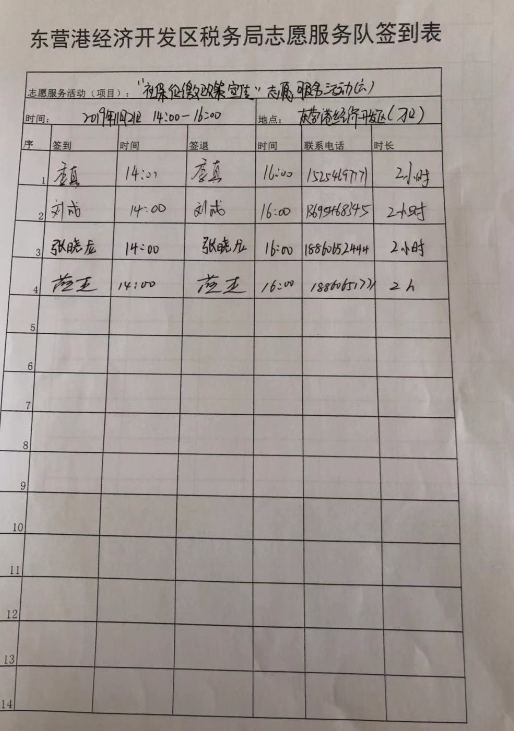 东营港经济开发区税务局志愿服务队签到表
志愿服务活动（项目）："社保征缴政策宣传"志愿服务活动(六)
时间： 14:00-16:00 地点：东营港经济开发区
序 签到 时间 签退 时间 联系电话 时长
1 李真 14:00 李真 16:00 2小时
2 刘成 14:00 刘成 16:00 2小时
3 张晓龙 14:00 张晓龙 16:00 18860652444 2小时
4 14:00 16:00 2h
5
6
7
8
9
10
11
12
13
14